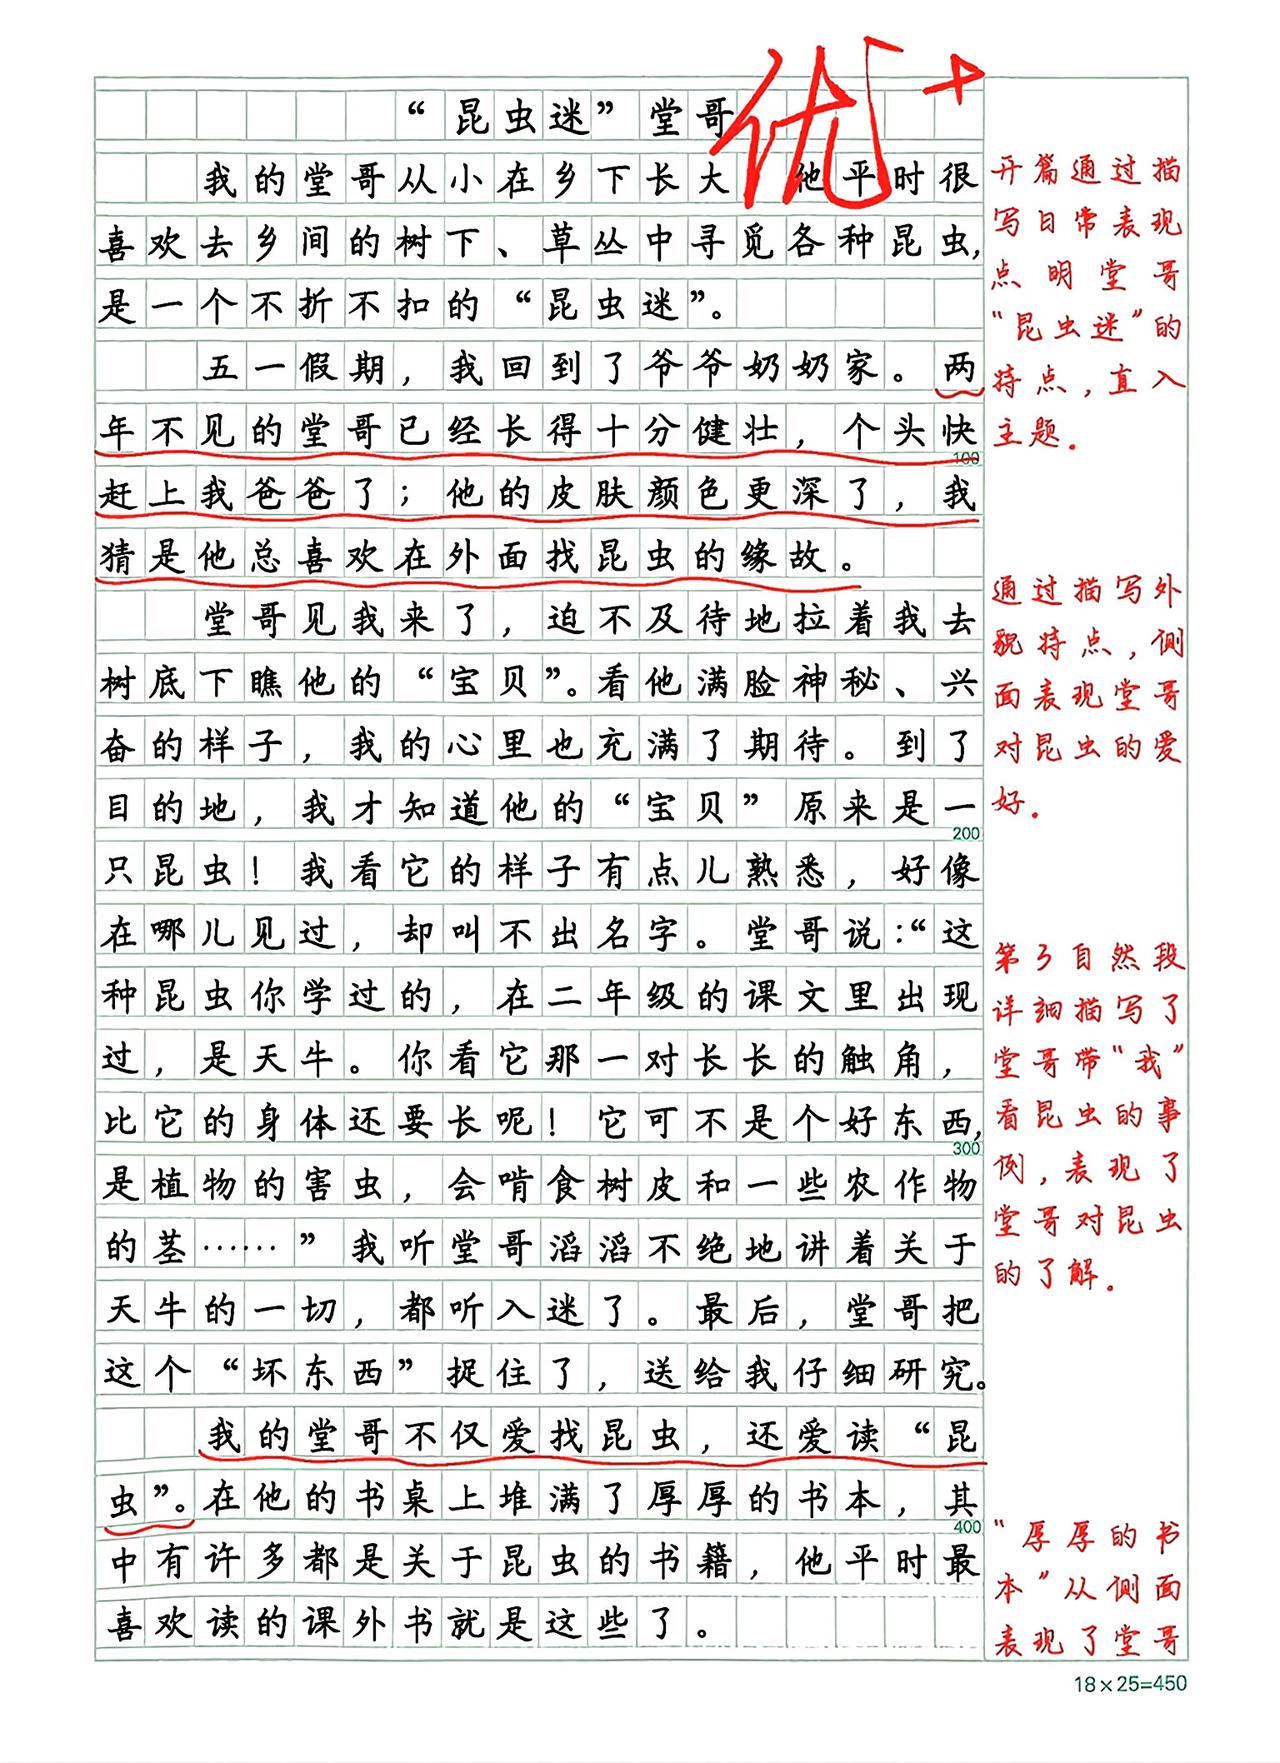 “昆虫迷”堂哥
优+
我的堂哥从小在乡下长大 他平时很
喜欢去乡间的树下、草丛中寻觅各种昆虫,
是一个不折不扣的“昆虫迷”。
五一假期,我回到了爷爷奶奶家。两
年不见的堂哥已经长得十分健壮,个头快
100
赶上我爸爸了;他的皮肤颜色更深了,我
猜是他总喜欢在外面找昆虫的缘故。
堂哥见我来了,迫不及待地拉着我去
树底下瞧他的“宝贝”。看他满脸神秘、兴
奋的样子,我的心里也充满了期待。到了
目的地,我才知道他的“宝贝”原来是一
200
只昆虫!我看它的样子有点儿熟悉,好像
在哪儿见过,却叫不出名字。堂哥说:“这
种昆虫你学过的,在二年级的课文里出现
过,是天牛。你看它那一对长长的触角,
比它的身体还要长呢!它可不是个好东西,
300
是植物的害虫,会啃食树皮和一些农作物
的茎……”我听堂哥滔滔不绝地讲着关于
天牛的一切,都听入迷了。最后,堂哥把
这个“坏东西”捉住了,送给我仔细研究。
我的堂哥不仅爱找昆虫,还爱读“昆
虫”。在他的书桌上堆满了厚厚的书本,其
400
中有许多都是关于昆虫的书籍,他平时最
喜欢读的课外书就是这些了。
开篇通过描
写日常表现
点明堂哥
“昆虫迷”的
特点,直入
主题。
通过描写外
貌特点,侧
面表现堂哥
对昆虫的爱
好。
第3自然段
详细描写了
堂哥带“我”
看昆虫的事
例,表现了
堂哥对昆虫
的了解。
“厚厚的书
本”从侧面
表现了堂哥
18×25=450